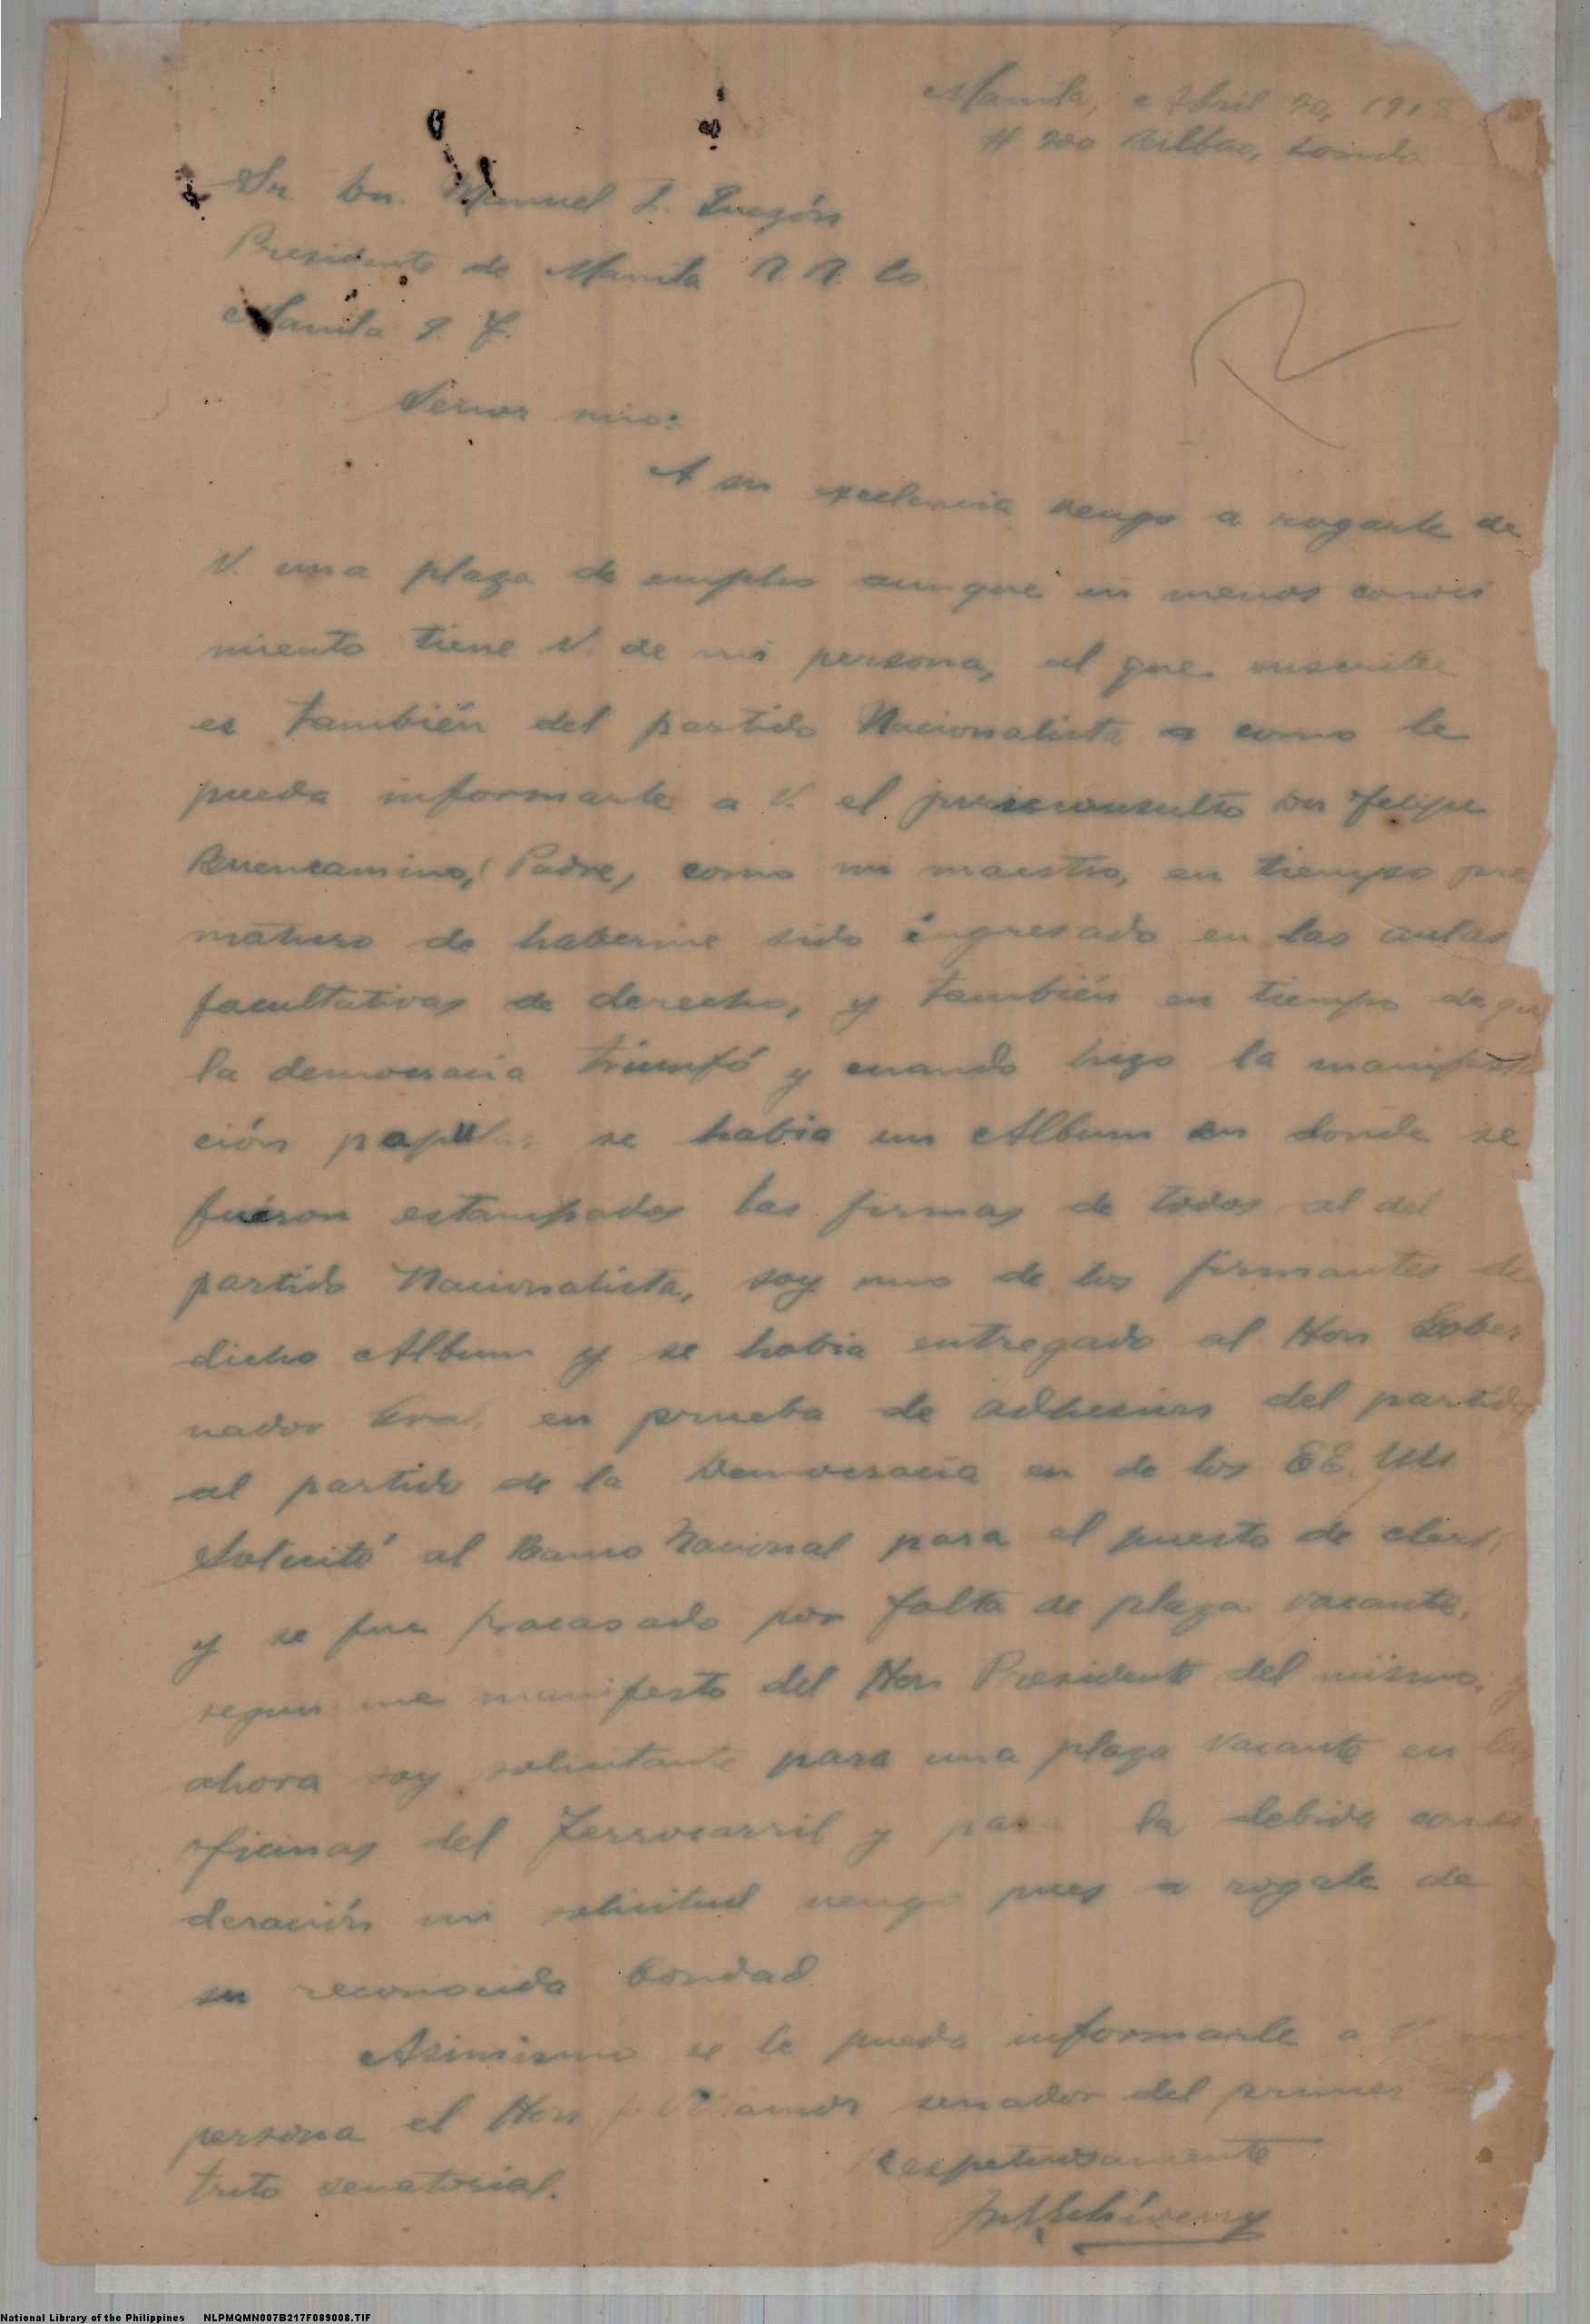 Manila, Abril 20, 191
# 200 Bilbao, Tondo
Sr. Dn. Manuel L. Quezón
Presidente de Manila R. R. Co.
Manila I. F.
Señor mio:
A su excelencia vengo a rogarle de
V. una plaza de empleo aunque en menos conoci
miento tiene V. de mi persona, el que suscribe
es también del partido Nacionalista a como le
pueda informarle a V. el jurisconsulto Dn Felipe
Buencamino, (Padre, como mi maestro, en tiempo pre
maturo de haberme sido ingresado en las aulas
facultativas de derecho, y también en tiempo de que
la democracia triunfó y cuando hizo la manifesta
ción popular se habia un Album en donde se
fuéron estampados las firmas de todos al del
partido Nacionalista, soy uno de los firmantes de
dicho Album y se habia entregado al Hon Gober
nador Gral. en prueba de adhesion del partido
al partido de la Democracia en de los EE. UU.
Solicité al Banco Nacional para el puesto de clerk,
y se fue fracasado por falta de plaza vacante,
segun me manifesto del Hon Presidente del mismo, y
ahora soy solicitante para una plaza vacante en las
oficinas del Ferrocarril y para la debida consi
deración mi solicitud vengo pues a rogale de
su reconocida bondad.
Asimismo se le pueda informarle a V. mi
persona el Hon senador del primer
trito senatorial.
Respetuosamente